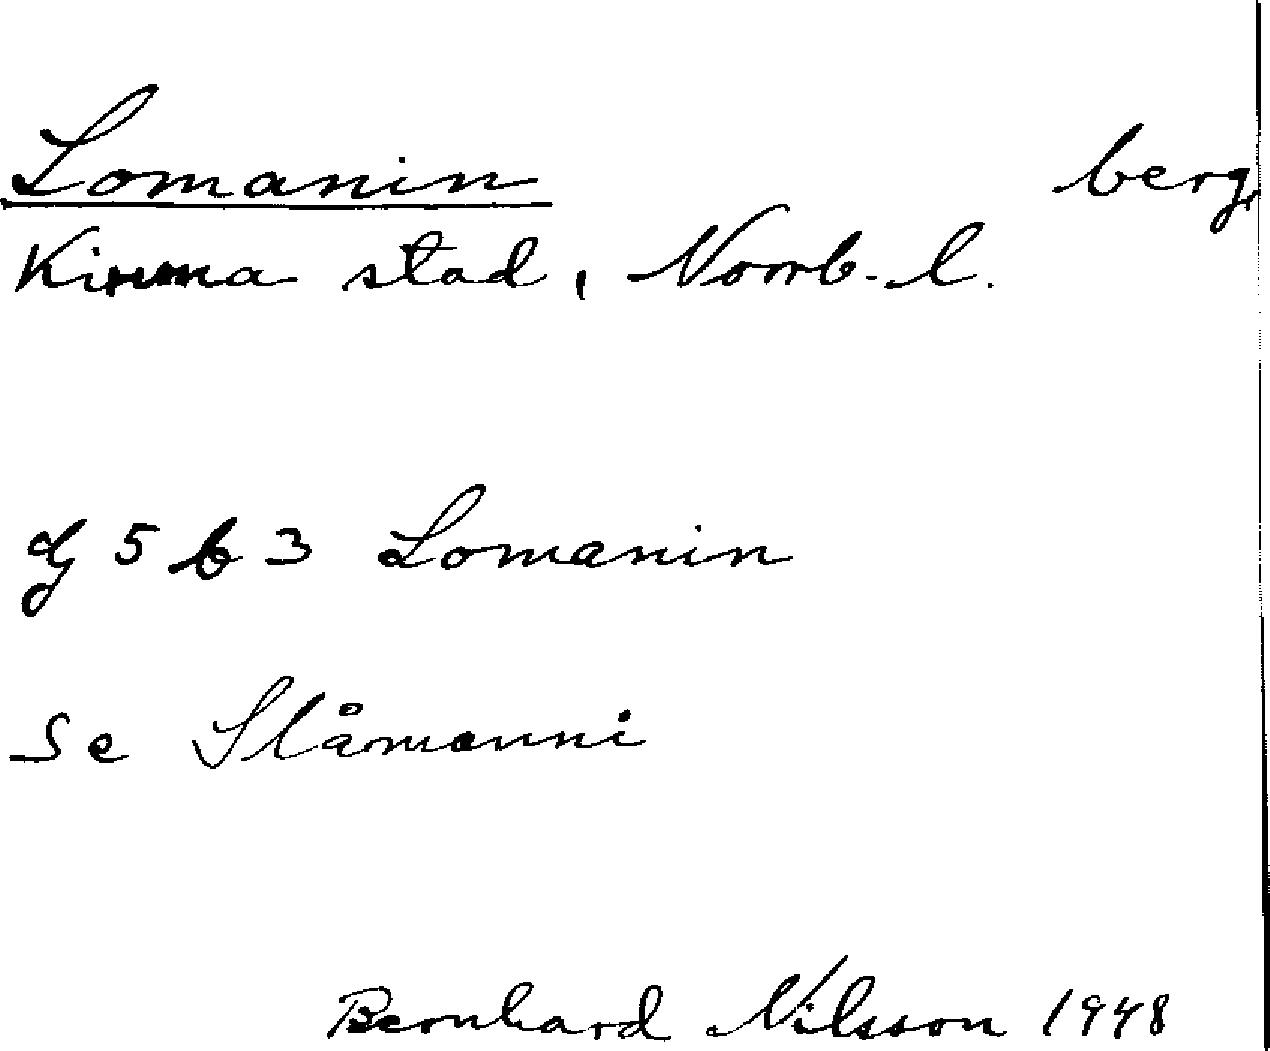 Lomanin berg,
Kiruna stad, Norrb. l.
G 5 b 3 Lomanin
Se Slåmanni
Bernhard Nilsson 1948